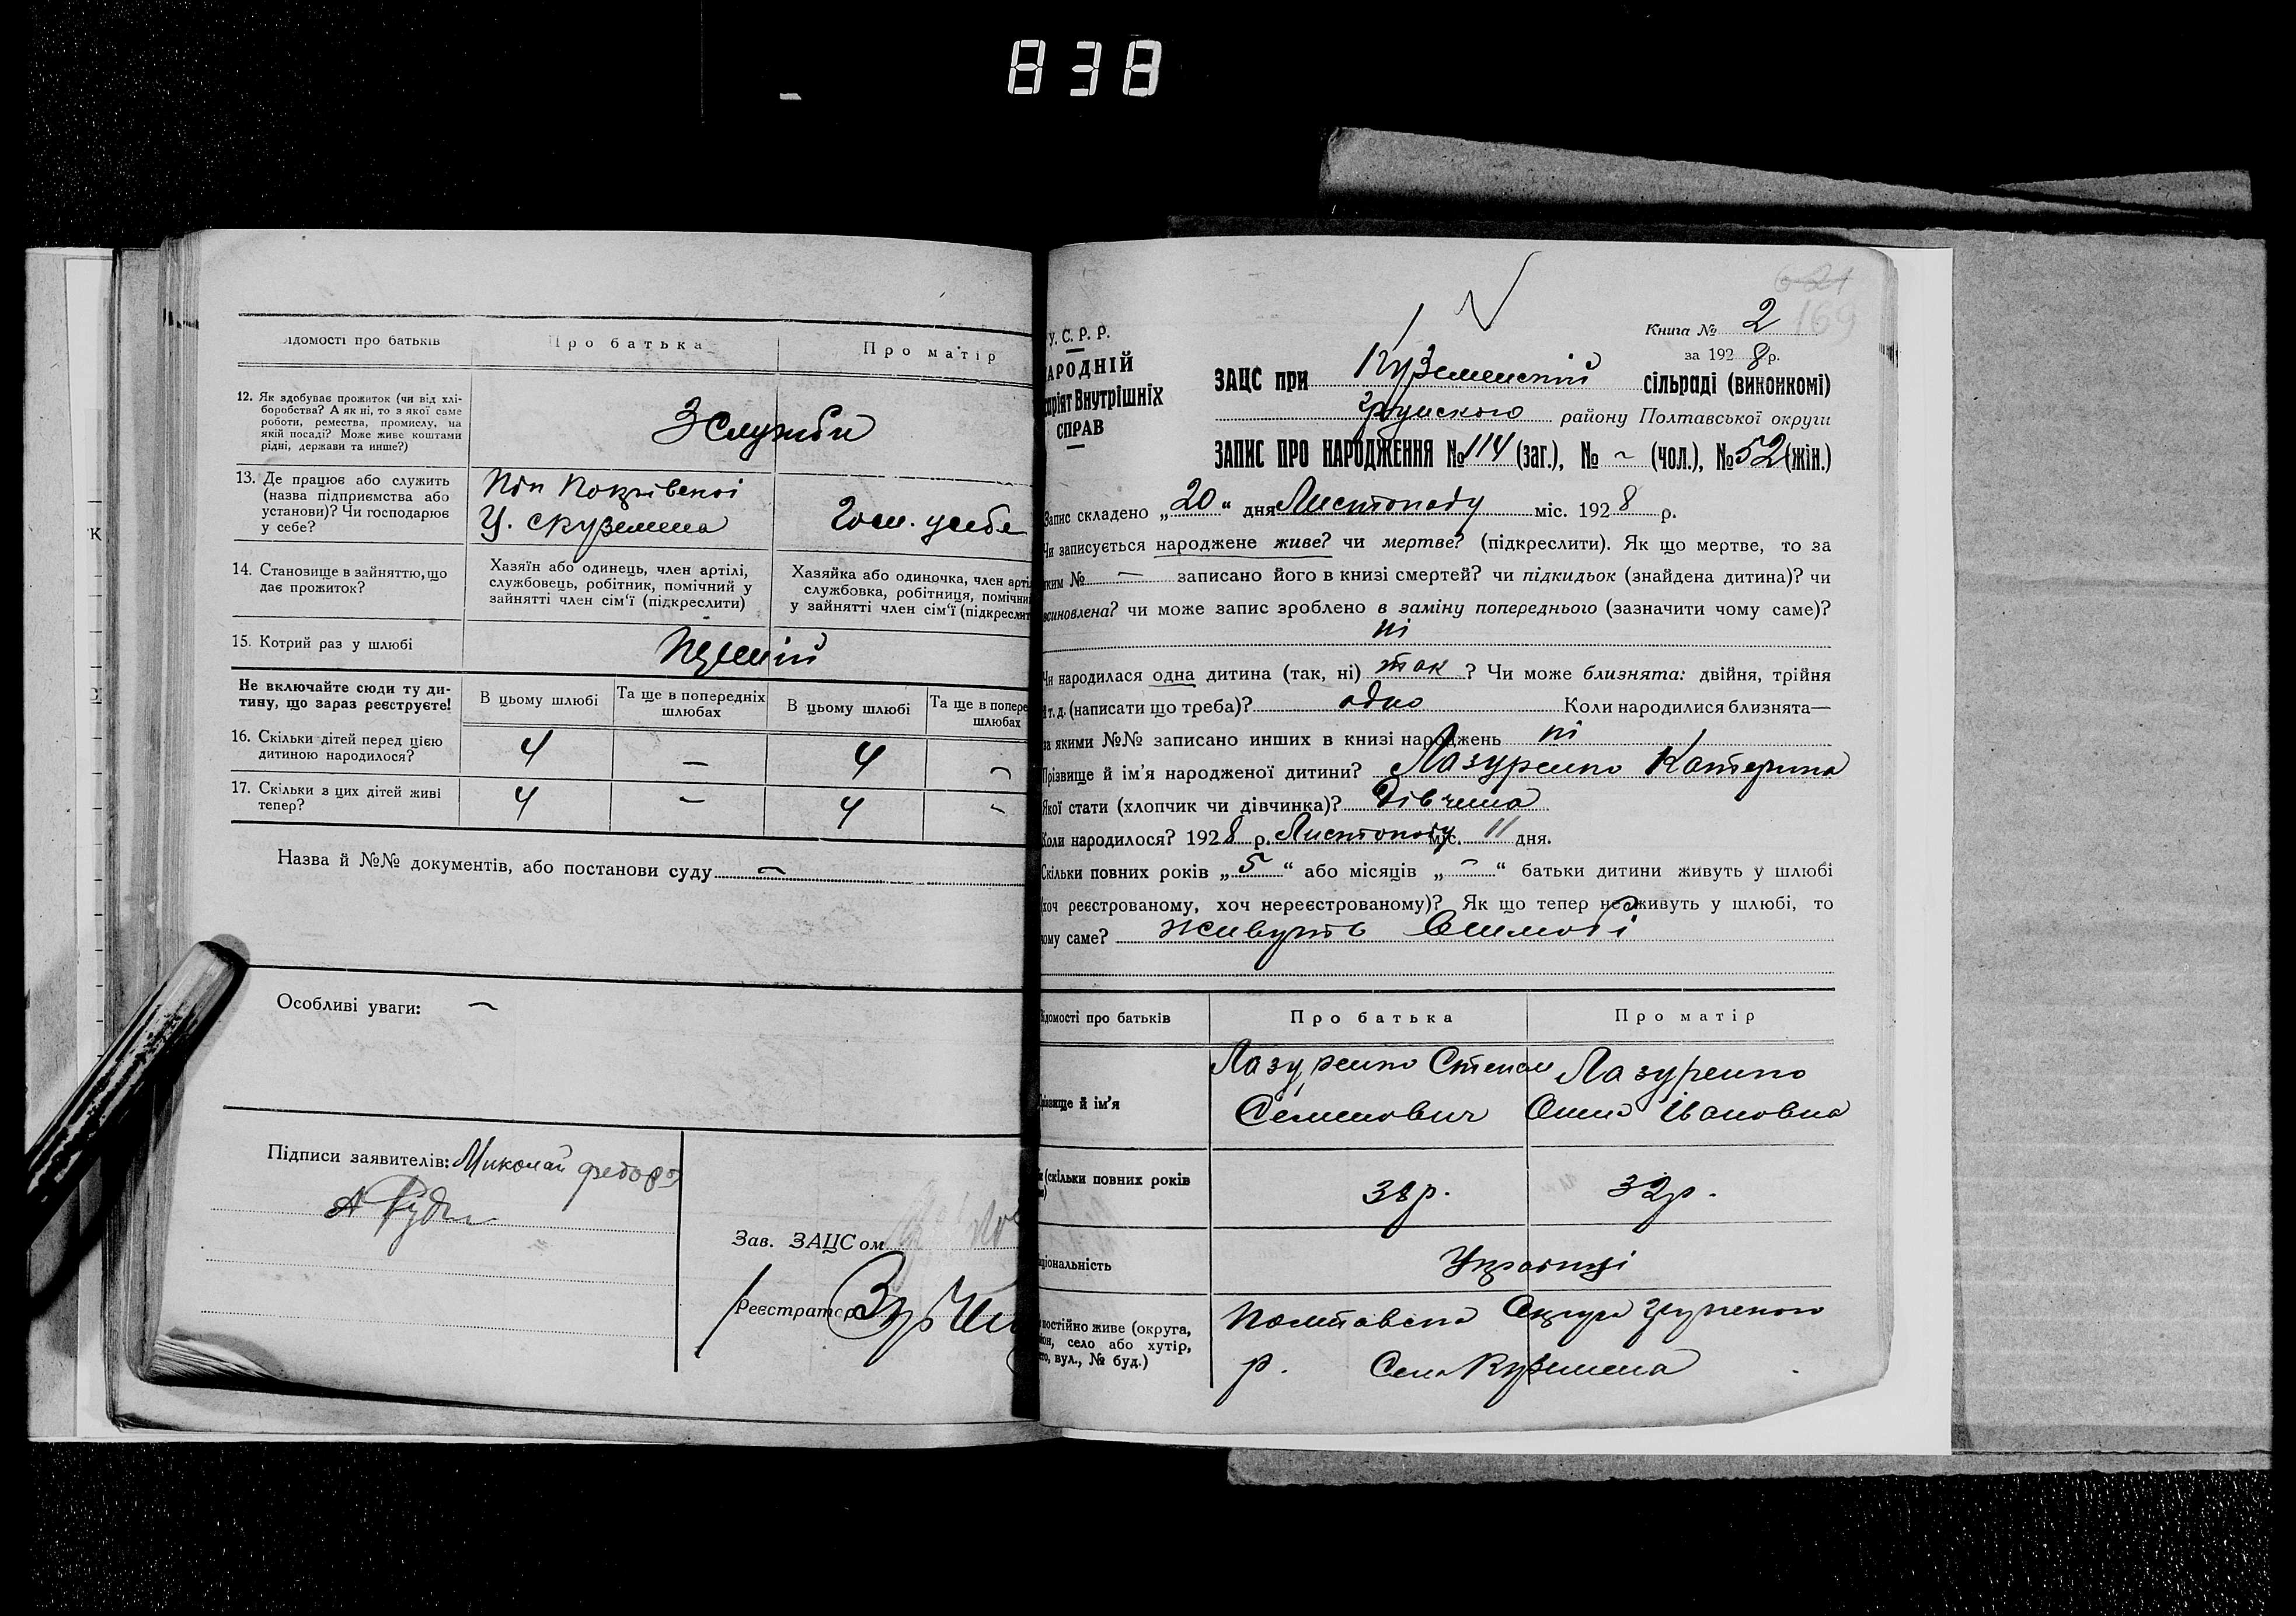 838
ідомості про батьків
Про батька
Про матір
12. Як здобуває прожиток (чи від хлі-
боробства? А як ні, то з якої саме
роботи, ремества, промислу, на
якій посаді? Може живе коштами
рідні, держави та инше?)
З служби
13. Де працює або служить
(назва підприємства або
установи)? Чи господарює
у себе?
Піп Покрівської
Ц. с Куземена
Госп. у себе
14. Становище в зайняттю, що
дає прожиток?
Хазяїн або одинець, член артілі,
службовець, робітник, помічний у
зайнятті член сім'ї (підкреслити)
Хазяйка або одиночка, член арті
службовка, робітниця, помічни
у зайнятті член сім'ї (підкреслит
15. Котрий раз у шлюбі
Не включайте сюди ту ди-
тину, що зараз реєструєте!
В цьому шлюбі
Та ще в попередніх
шлюбах
В цьому шлюбі
Та ще в попере
шлюбах
16. Скільки дітей перед цією
дитиною народилося?
4 — 4 —
17. Скільки з цих дітей живі
тепер?
4 — 4 -
Назва й №№ документів, або постанови суду —
Особливі уваги: —
Підписи заявителів: Миколай Федоро
А Рудь
Зав. ЗАЦСом
Реєстратор
У. С. Р. Р.
АРОДНІЙ
аріят Внутрішніх
СПРАВ
169
Книга № 2
за 1928 р.
ЗАЦС при Куземенский сільраді (виконкомі)
Грунского району Полтавської округи
ЗАПИС ПРО НАРОДЖЕННЯ № 114 (заг.), № ~ (чол.), № 52 (жін.)
Запис складено „20“ дня Листопаду міс. 1928 р.
Чи записується народжене живе? чи мертве? (підкреслити). Як що мертве, то за
яким № — записано його в книзі смертей? чи підкидьок (знайдена дитина)? чи
всиновлена? чи може запис зроблено в заміну попереднього (зазначити чому саме)?
ні
Чи народилася одна дитина (так, ні) так ? Чи може близнята: двійня, трійня
і т. д. (написати що треба)? одно Коли народилися близнята—
за якими №№ записано инших в книзі народжень ні
Прізвище й ім'я народженої дитини? Лазуренко Катерина
Якої стати (хлопчик чи дівчинка)? Дівчина
Коли народилося? 1928 р. Листопаду міс. 11 дня.
Скільки повних років „5“ або місяців „—“ батьки дитини живуть у шлюбі
(хоч реєстрованому, хоч нереєстрованому)? Як що тепер не живуть у шлюбі, то
чому саме? живуть
ідомості про батьків
Про батька
Про матір
різвище й ім'я
Лазуренко Степан
Семенович
Лазуренко
Оина Івановна
к (скільки повних років
38р.
32р.
аціональність
Українці
постійно живе (округа,
йон, село або хутір,
сто, вул., № буд.)
Полтавска Округа Грунского
р. Села Куземена